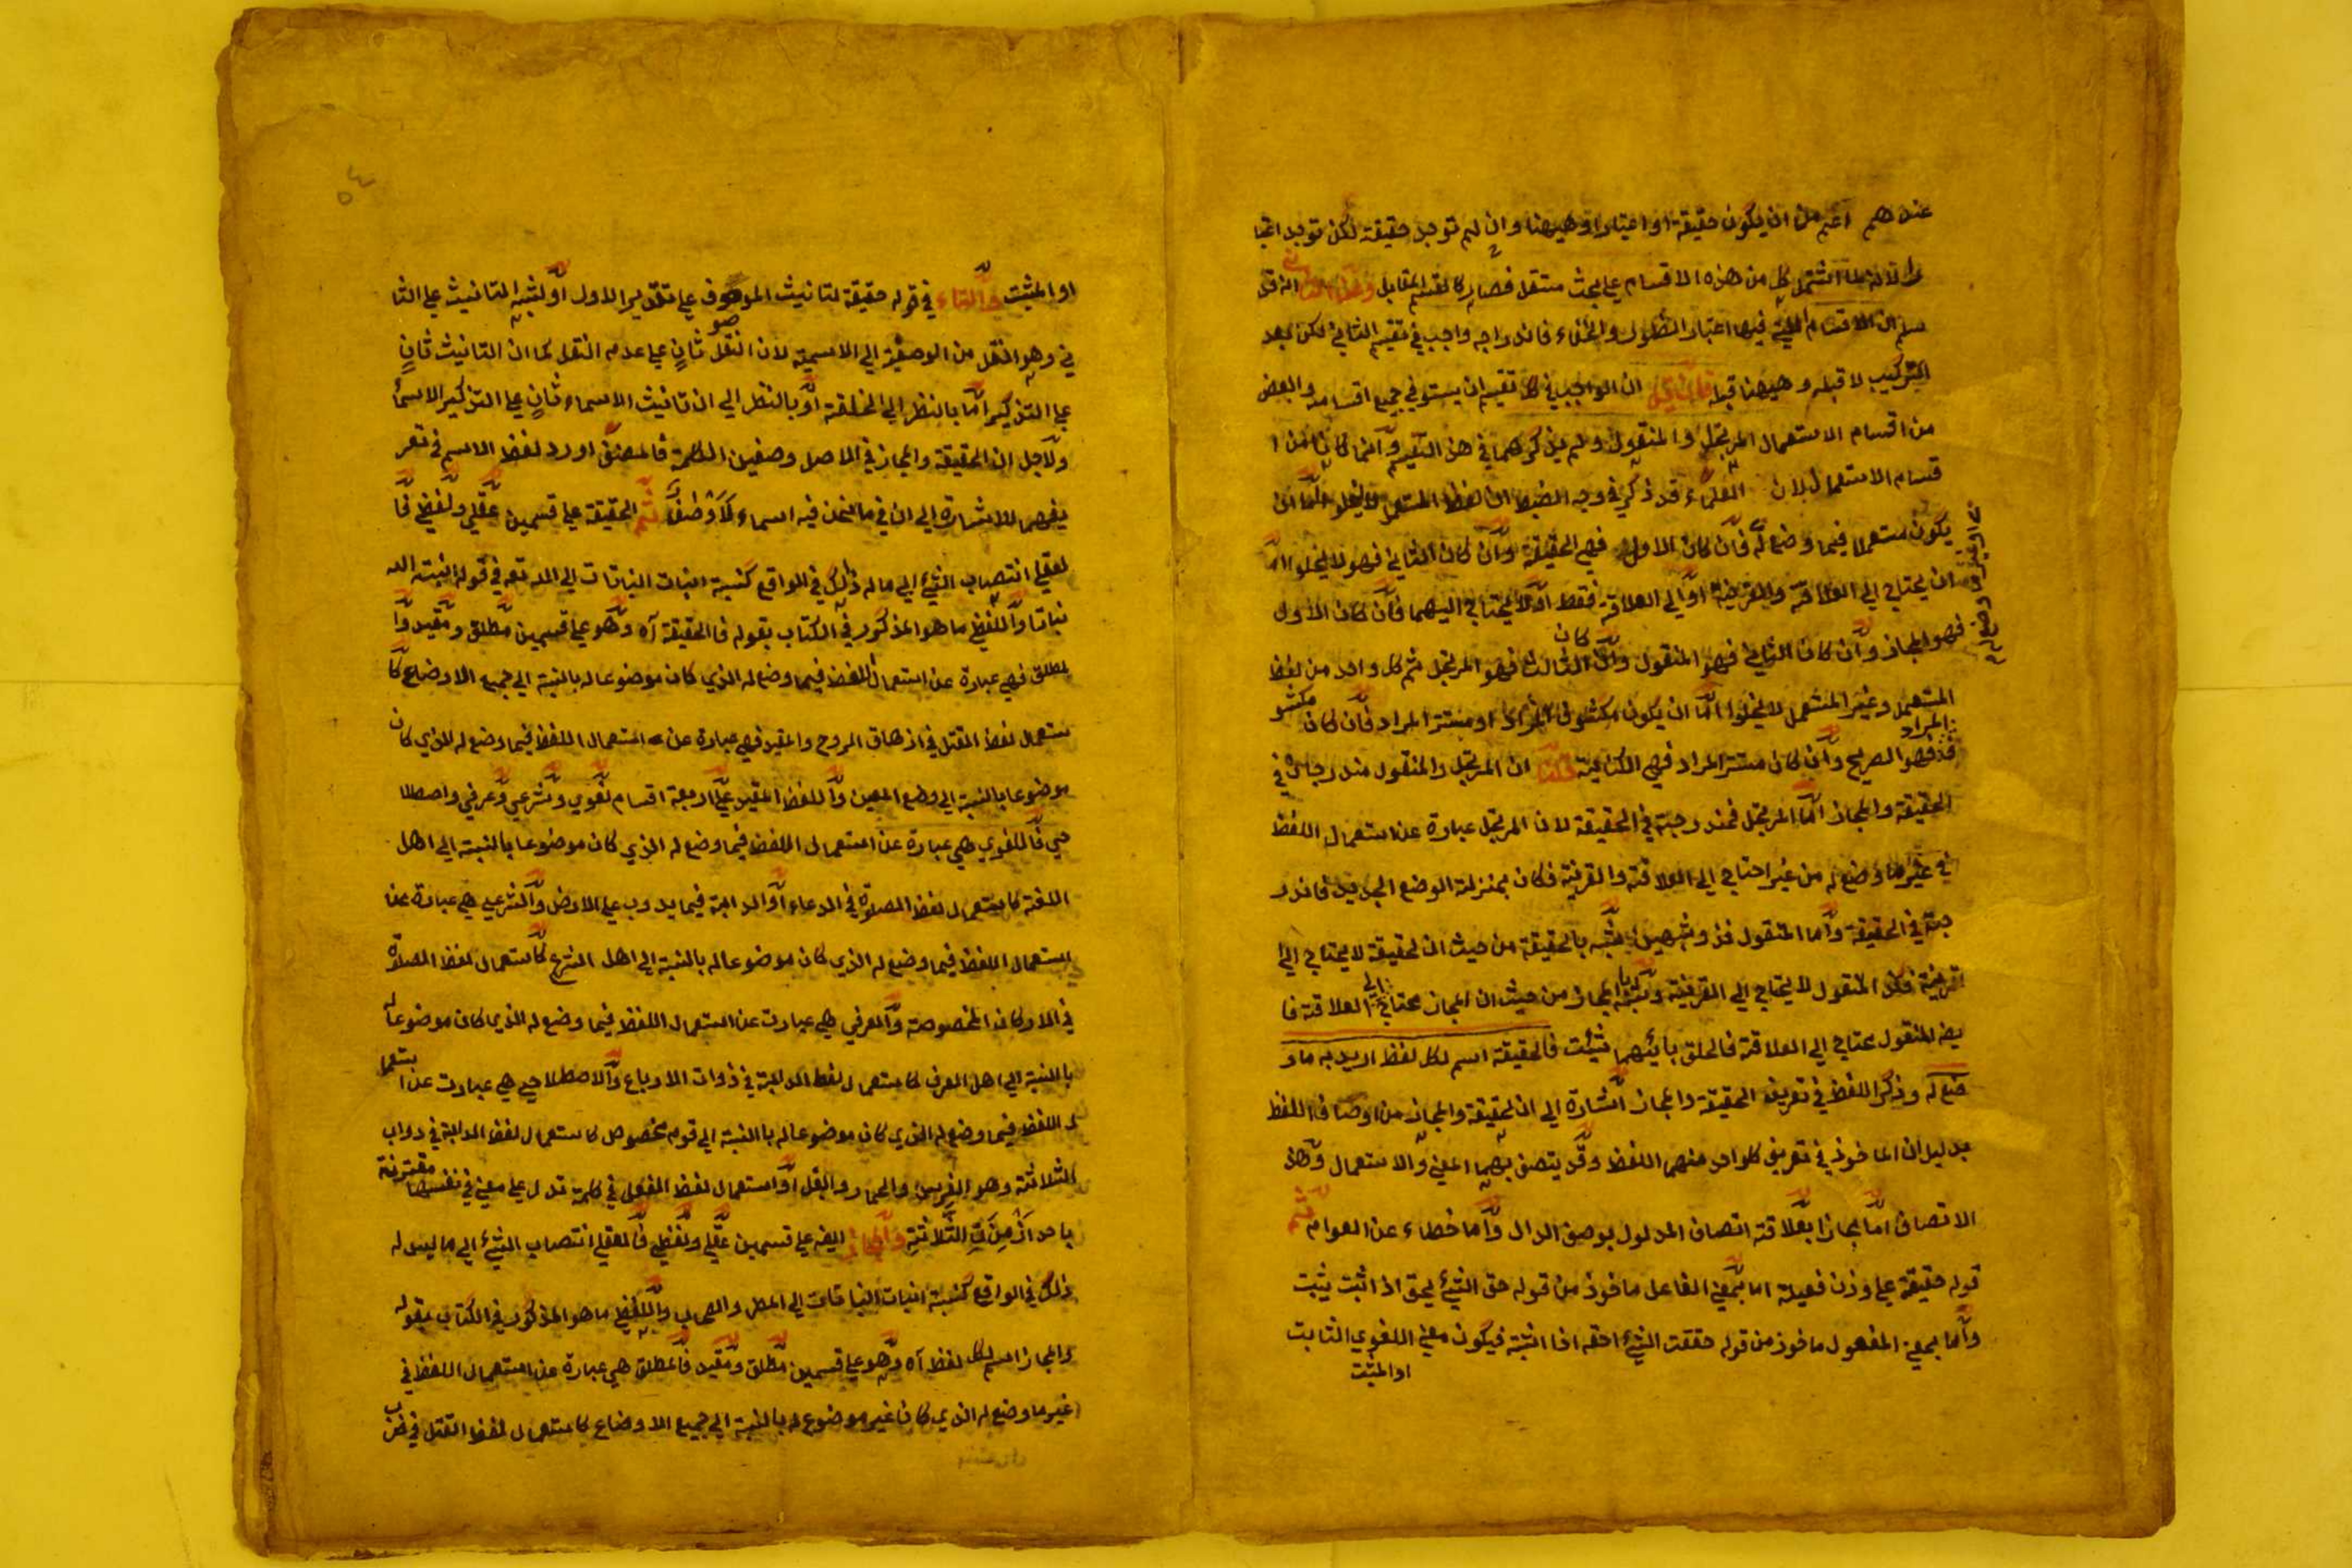 عندهم اعم من ان يكون حقيقة او اعتبارا وهيهنا وان لم توجد حقيقة لكن توجد اعتبا
را لانه لما اشتمل كل من هذه الاقسام على بحث مستقل فصار كالقسم المقابل
سم ان الاقسام التي فيها اعتبار الظهور والخفاء فاندراجه واجب في تقسيم الثاني لكن بعد
التركيب لا قبله وهيهنا قبله فان قيل ان الواجب في كل تقسيم ان يستوفي جميع اقسامه والبعض
من اقسام الاستعمال المرتجل والمنقول ولم يذكرهما في هذا التقسيم وانما كانا من ا
قسام الاستعمال لان العلماء قد ذكر في وجه الضبط ان لفظ المستعمل لا يخلو اما ان
يكون مستعملا فيما وضع له فان كان الاول فهي الحقيقة وان كان الثاني فهو لا يخلوا اما
او غير ما وضع له
ان يحتاج الى العلاقة والقرينة او الى العلاقة فقط او لا يحتاج اليهما فان كان الاول
فهو المجاز وان كان الثاني فهو المنقول وان كان الثالث فهو المرتجل ثم كل واحد من لفظ
المستعمل وغير المستعمل لا يخلوا اما ان يكون مكشوف المراد او مستتر المراد فان كان مكشو
ف المراد فهو الصريح وان كان مستتر المراد فهي الكناية قلنا ان المرتجل والمنقول مندرجان في
الحقيقة والمجاز اما المرتجل فمندرجة في الحقيقة لان المرتجل عبارة عن استعمال اللفظ
في غير ما وضع له من غير احتياج الى العلاقة والقرينة فكان بمنزلة الوضع الجديد فاندر
جة في الحقيقة واما المنقول فذو شبهين شبه بالحقيقة من حيث ان الحقيقة لا يحتاج الى
القرينة فكذا المنقول لا يحتاج الى القرينة وشبه بالمجاز من حيث ان المجاز محتاج الى العلاقة فا
يضا المنقول محتاج الى العلاقة فالحق بايهما شئت فالحقيقة اسم لكل لفظ اريد به ما و
ضع له وذكر اللفظ في تعريف الحقيقة والمجاز اشارة الى ان الحقيقة والمجاز من اوصاف اللفظ
بدليل ان الماخوذ في تعريف كلواحد منهما اللفظ وقد يتصف بهما المعنى والاستعمال وهذ
الاتصاف اما مجازا بعلاقة اتصاف المدلول بوصف الدال واما خطاء عن العوام ثم
قوله حقيقة على وزن فعيلة اما بمعنى الفاعل ماخوذ من قوله حق الشيء يحق اذا ثبت يثبت
واما بمعنى المفعول ماخوذ من قوله حققت الشيء احقه اذا اثبته فيكون معنى اللغوي الثابت
او المثبت
٥٤
او المثبت والتاء في قوله حقيقة لتانيث الموصوف على تقدير الاول او لشبه التانيث على الثا
ني وهو النقل من الوصفية الى الاسمية لان النقل ثان على عدم النقل كما ان التانيث ثان
على التذكير اما بالنظر الى الخلقة او بالنظر الى ان تانيث الاسماء ثان على التذكير الاسما
ولاجل ان الحقيقة والمجاز في الاصل وصفين للكلمة فالمصنف اورد لفظ الاسم في تعر
يفهما للاشارة الى ان في ما نحن فيه اسماء لا وصفا ثم الحقيقة على قسمين عقلي ولفظي فا
لعقلي انتصاب الشيء الى ما له ذلك في الواقع كنسبة انبات النباتات الى الله تعه في قوله انبته الله
نباتا واللفظي ما هو المذكور في الكتاب بقوله فالحقيقة آه وهو على قسمين مطلق ومقيد وا
لمطلق فهي عبارة عن استعمال اللفظ فيما وضع له الذي كان موضوعا له بالنسبة الى جميع الاوضاع كا
ستعمال لفظ القتل في ازهاق الروح والمقيد فهي عبارة عن استعمال اللفظ فيما وضع له الذي كان
موضوعا بالنسبة الى وضع المعين واللفظ المقيد على اربعة اقسام لغوي وشرعي وعرفي واصطلا
حي فاللغوي هي عبارة عن استعمال اللفظ فيما وضع له الذي كان موضوعا بالنسبة الى اهل
اللغة كاستعمال لفظ الصلوة في الدعاء او الدابة فيما يدوب على الارض والشرعي هي عبارة عن
استعمال اللفظ فيما وضع له الذي كان موضوعا له بالنسبة الى اهل الشرع كاستعمال لفظ الصلوة
في الاركان المخصوصة والعرفي هي عبارت عن استعمال اللفظ فيما وضع له الذي كان موضوعا له
بالنسبة الى اهل العرف كاستعمال لفظ الدابة في ذوات الارباع والاصطلاحي هي عبارت عن استعما
ل اللفظ فيما وضع له الذي كان موضوعا له بالنسبة الى قوم مخصوص كاستعمال لفظ الدابة في دواب
الثلاثة وهو الفرس والحمار والبغل او استعمال لفظ الفعل في كلمة تدل على معنى في نفسها مقترنة
باحد ازمنة الثلاثة والمجاز ايضه على قسمين عقلي ولفظي فالعقلي انتصاب الشيء الى ما ليس له
ذلك في الواقع كنسبة انبات النباتات الى المطر والسحاب واللفظي ما هو المذكور في الكتاب بقوله
والمجاز اسم لكل لفظ آه وهو على قسمين مطلق ومقيد فالمطلق هي عبارة عن استعمال اللفظ في
غير ما وضع له الذي كان غير موضوع له بالنسبة الى جميع الاوضاع كاستعمال لفظ القتل في ضرب